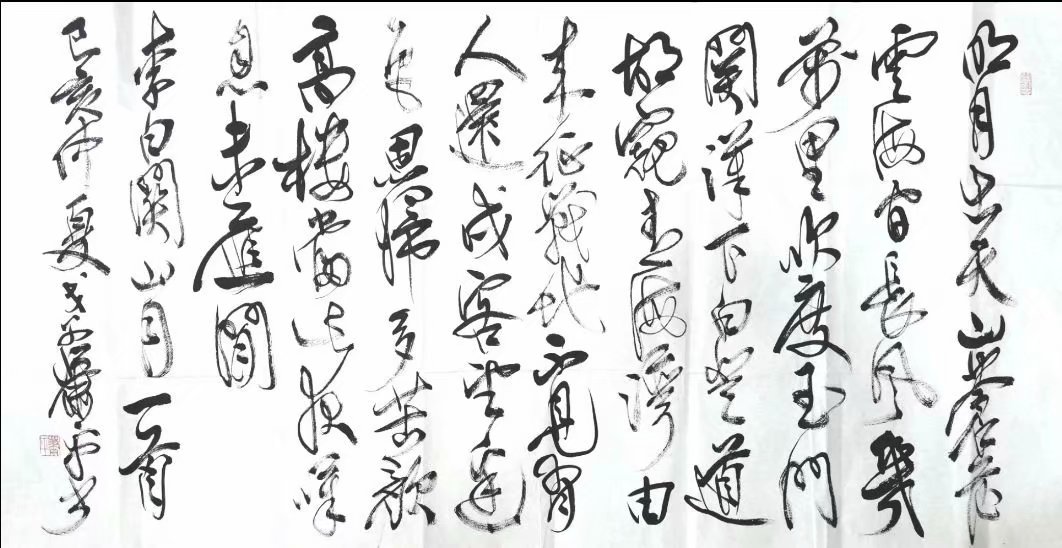 明月出天山蒼茫
雲海間長風幾
萬里吹度玉門
關漢下白登道
胡窺青海灣由
来征戰地不見有
人還戍客望邊
思歸多苦顏
高樓當此夜嘆
息未應閒
李白關山月一首
己亥仲夏書